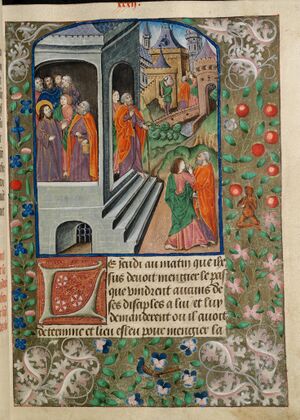 xxxii.
Le jeudi au matin que ihe
sus devoit mengier le pas
que vindrent aucuns de
ses disciples a luy et luy
demanderent ou il avoit
determine et lieu esleu pour mengier la